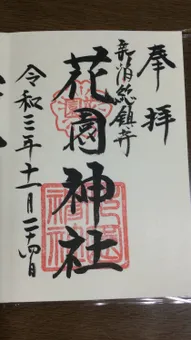 奉拝
新宿総鎮守
花園神社
令和三年十一月二十四日